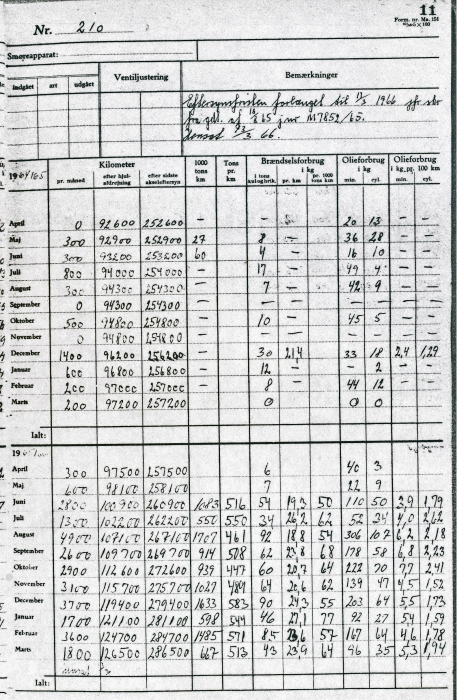 11
Form. nr. Ma. 151
Nr. 210
Smøreapparat:
Ventiljustering Bemærkninger
indgået art udgået
Eftersynsfristen forlænget til 1966
65 jnr M7852/65.
66.
Kilometer 1000 tons km Tons pr. km Brændselsforbrug i kg Olieforbrug i kg Olieforbrug i kg pr. 100 km
1964/65 pr. måned efter hjulafdrejning efter sidste akseleftersyn i tons kul og brik. pr. km pr. 1000 tons km min. cyl. min. cyl.
April 0 92600 252600 — — — — 20 13 — —
Maj 300 92900 252900 27 8 — 36 28 — —
Juni 300 93200 253200 60 4 — 16 10 — —
Juli 800 94000 254000 — 17 — 49 4 — —
August 300 94300 254300 — 7 — 42 9 — —
September 0 94300 254300 — — — — — — —
Oktober 500 94800 254800 — 10 — 45 5 — —
November 0 94800 254800 — — — — — — —
December 1400 96200 256200 — 30 21,4 33 18 2,4 1,29
Januar 600 96800 256800 — 12 — — 2 — —
Februar 200 97000 257000 — 8 44 12 — —
Marts 200 97200 257200 0 0 0
Ialt:
196
April 300 97500 257500 6 40 3
Maj 600 98100 258100 7 22 9
Juni 2800 100900 260900 1083 516 54 19,3 50 110 50 3,9 1,79
Juli 1300 102200 262200 550 550 34 26,2 62 52 34 4,0 2,62
August 4900 107100 267100 1707 461 92 18,8 54 306 107 6,2 2,18
September 2600 109700 269700 914 508 62 23,8 68 178 58 6,8 2,23
Oktober 2900 112600 272600 939 447 60 20,7 64 222 70 7,7 2,41
November 3100 115700 275700 1027 489 64 20,6 62 139 47 4,5 1,52
December 3700 119400 279400 1633 583 90 24,3 55 203 64 5,5 1,73
Januar 1700 121100 281100 598 544 46 27,1 77 92 27 5,4 1,59
Februar 3600 124700 284700 1485 571 85 23,6 57 167 64 4,6 1,78
Marts 1800 126500 286500 667 513 43 23,9 64 96 35 5,3 1,94
Ialt: